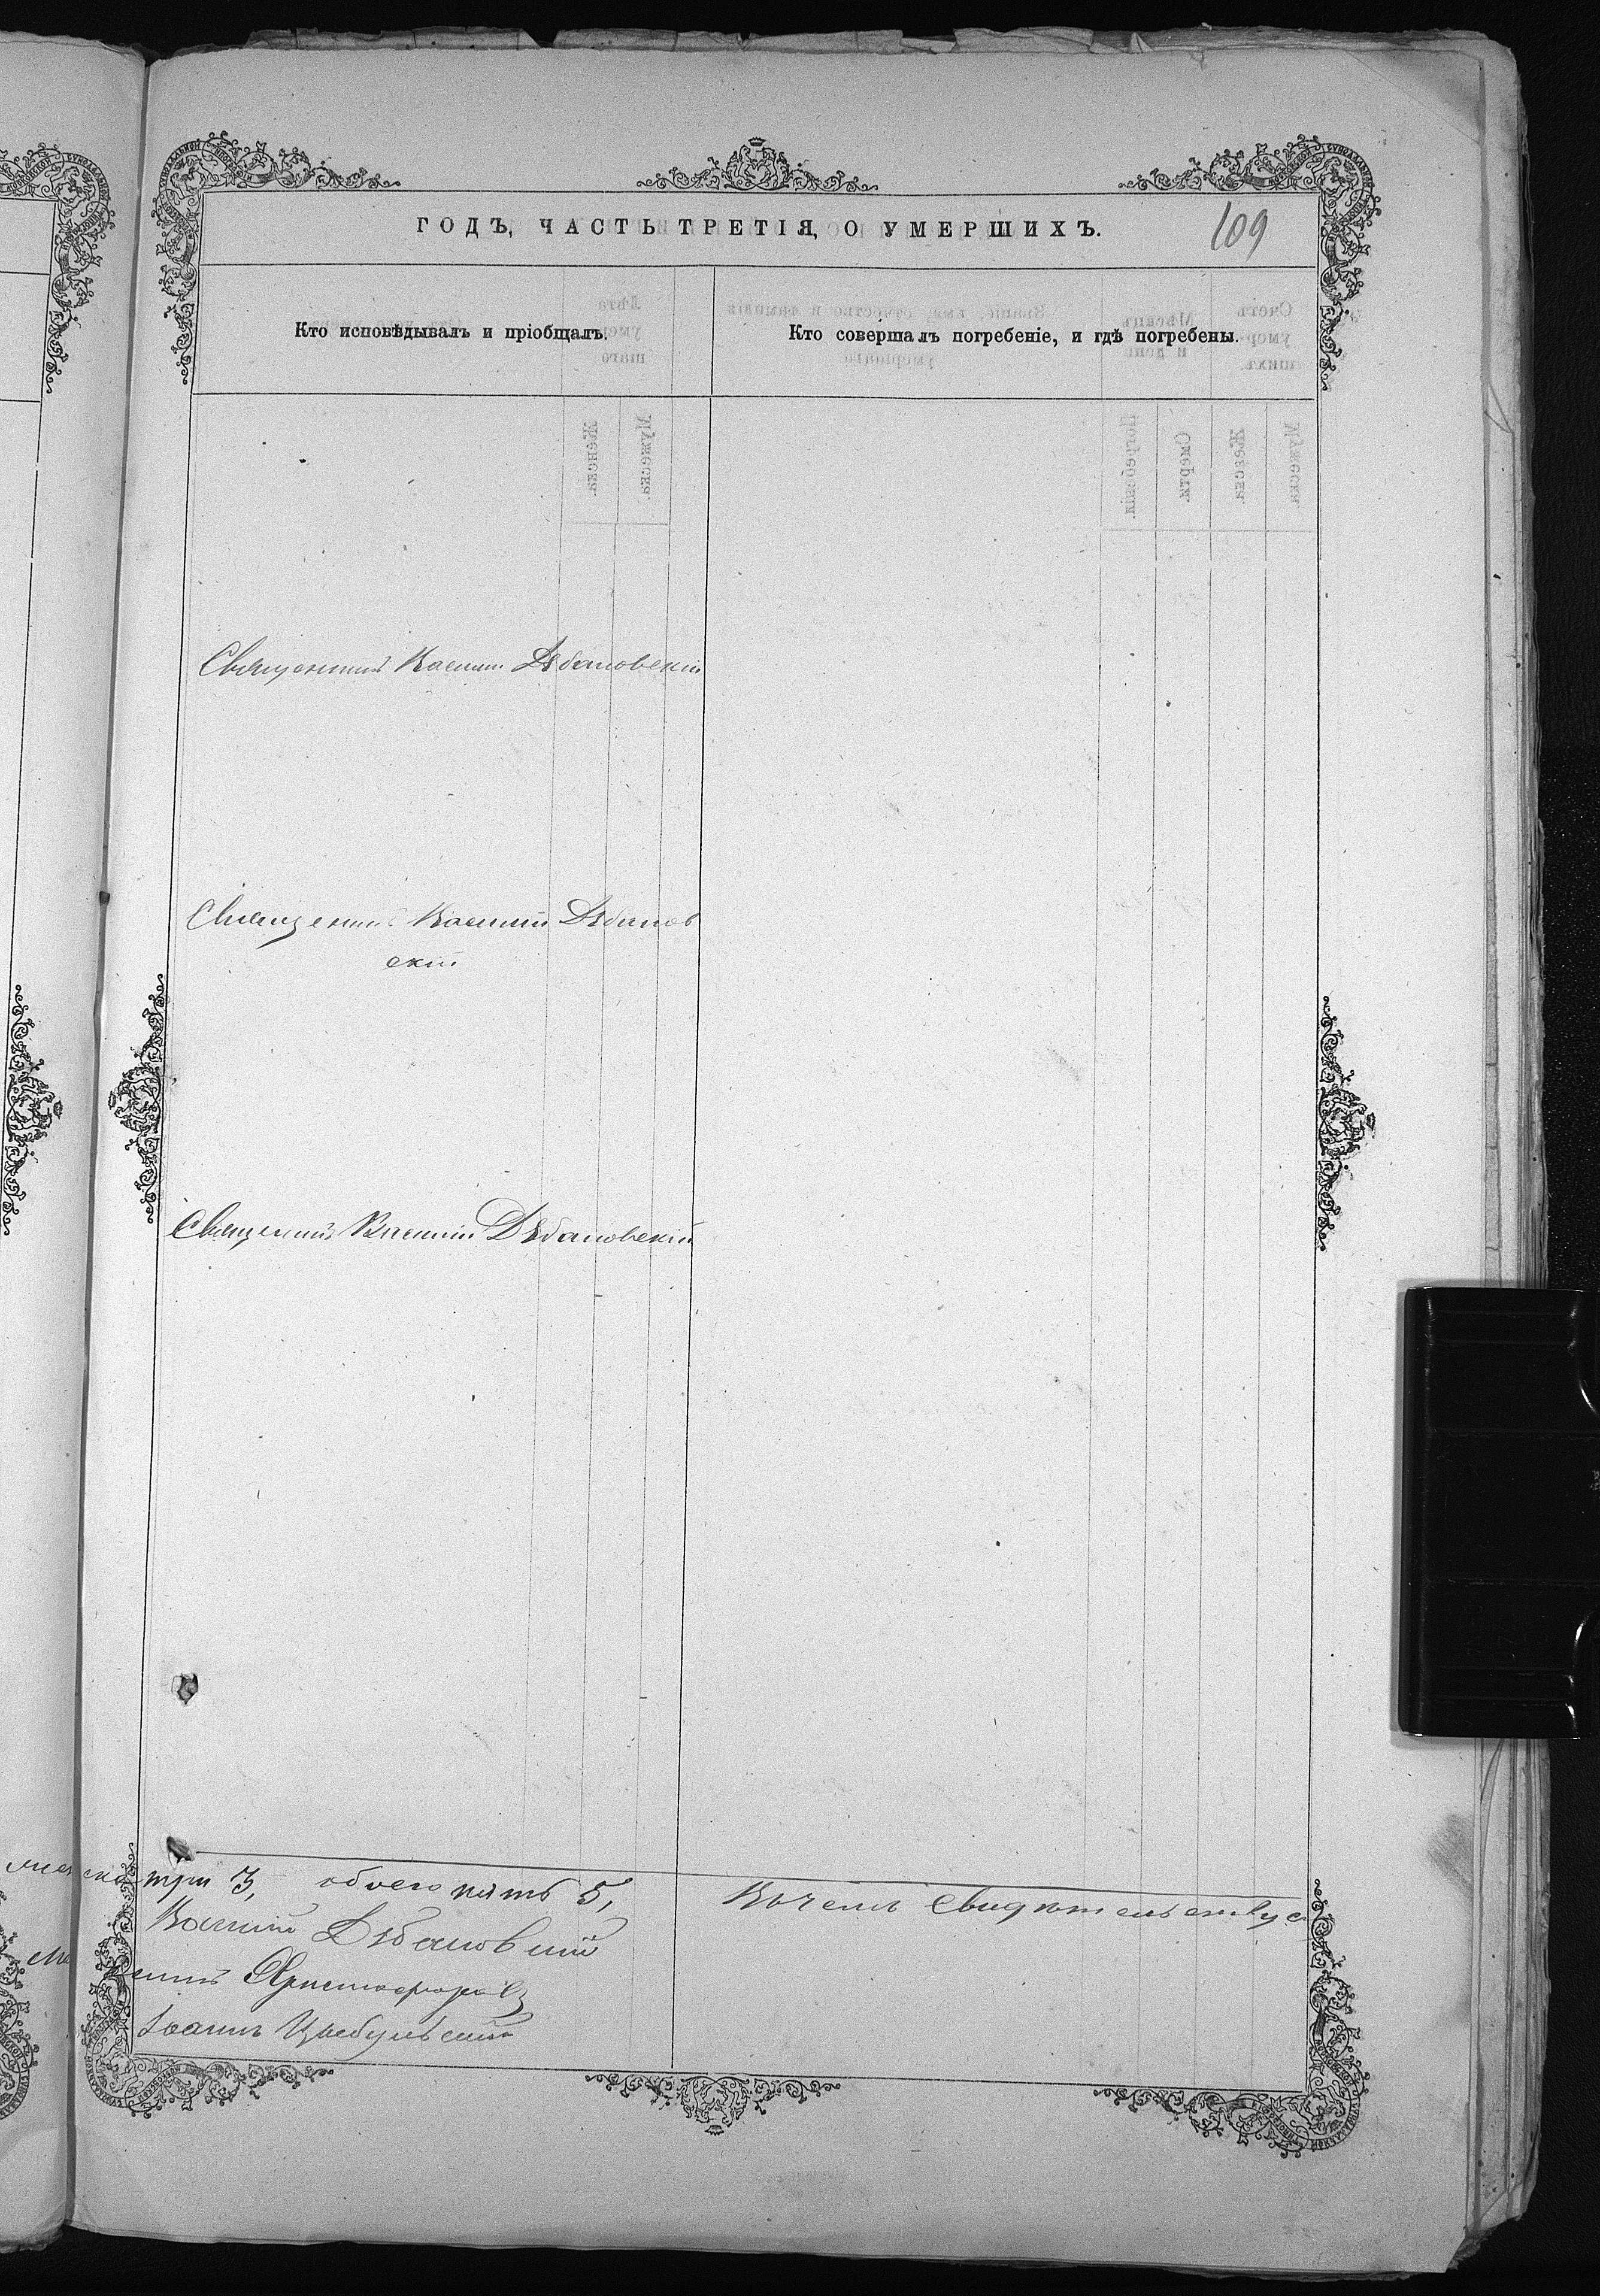 ГОДЪ, ЧАСТЬ ТРЕТІЯ, О УМЕРШИХЪ.
109
Кто исповѣдывалъ и пріобщалъ.
Кто совершалъ погребеніе, и гдѣ погребены.
Священникъ Василій Дѣбановскій
Священникъ Василій Дѣбанов
скій
Священникъ Василій Дѣбановскій
три 3, обоего пять 5,
Въ чемъ свидѣтельствуе
Василій Дѣбановскій
Христофоровъ
Іоаннъ Цыбульскій